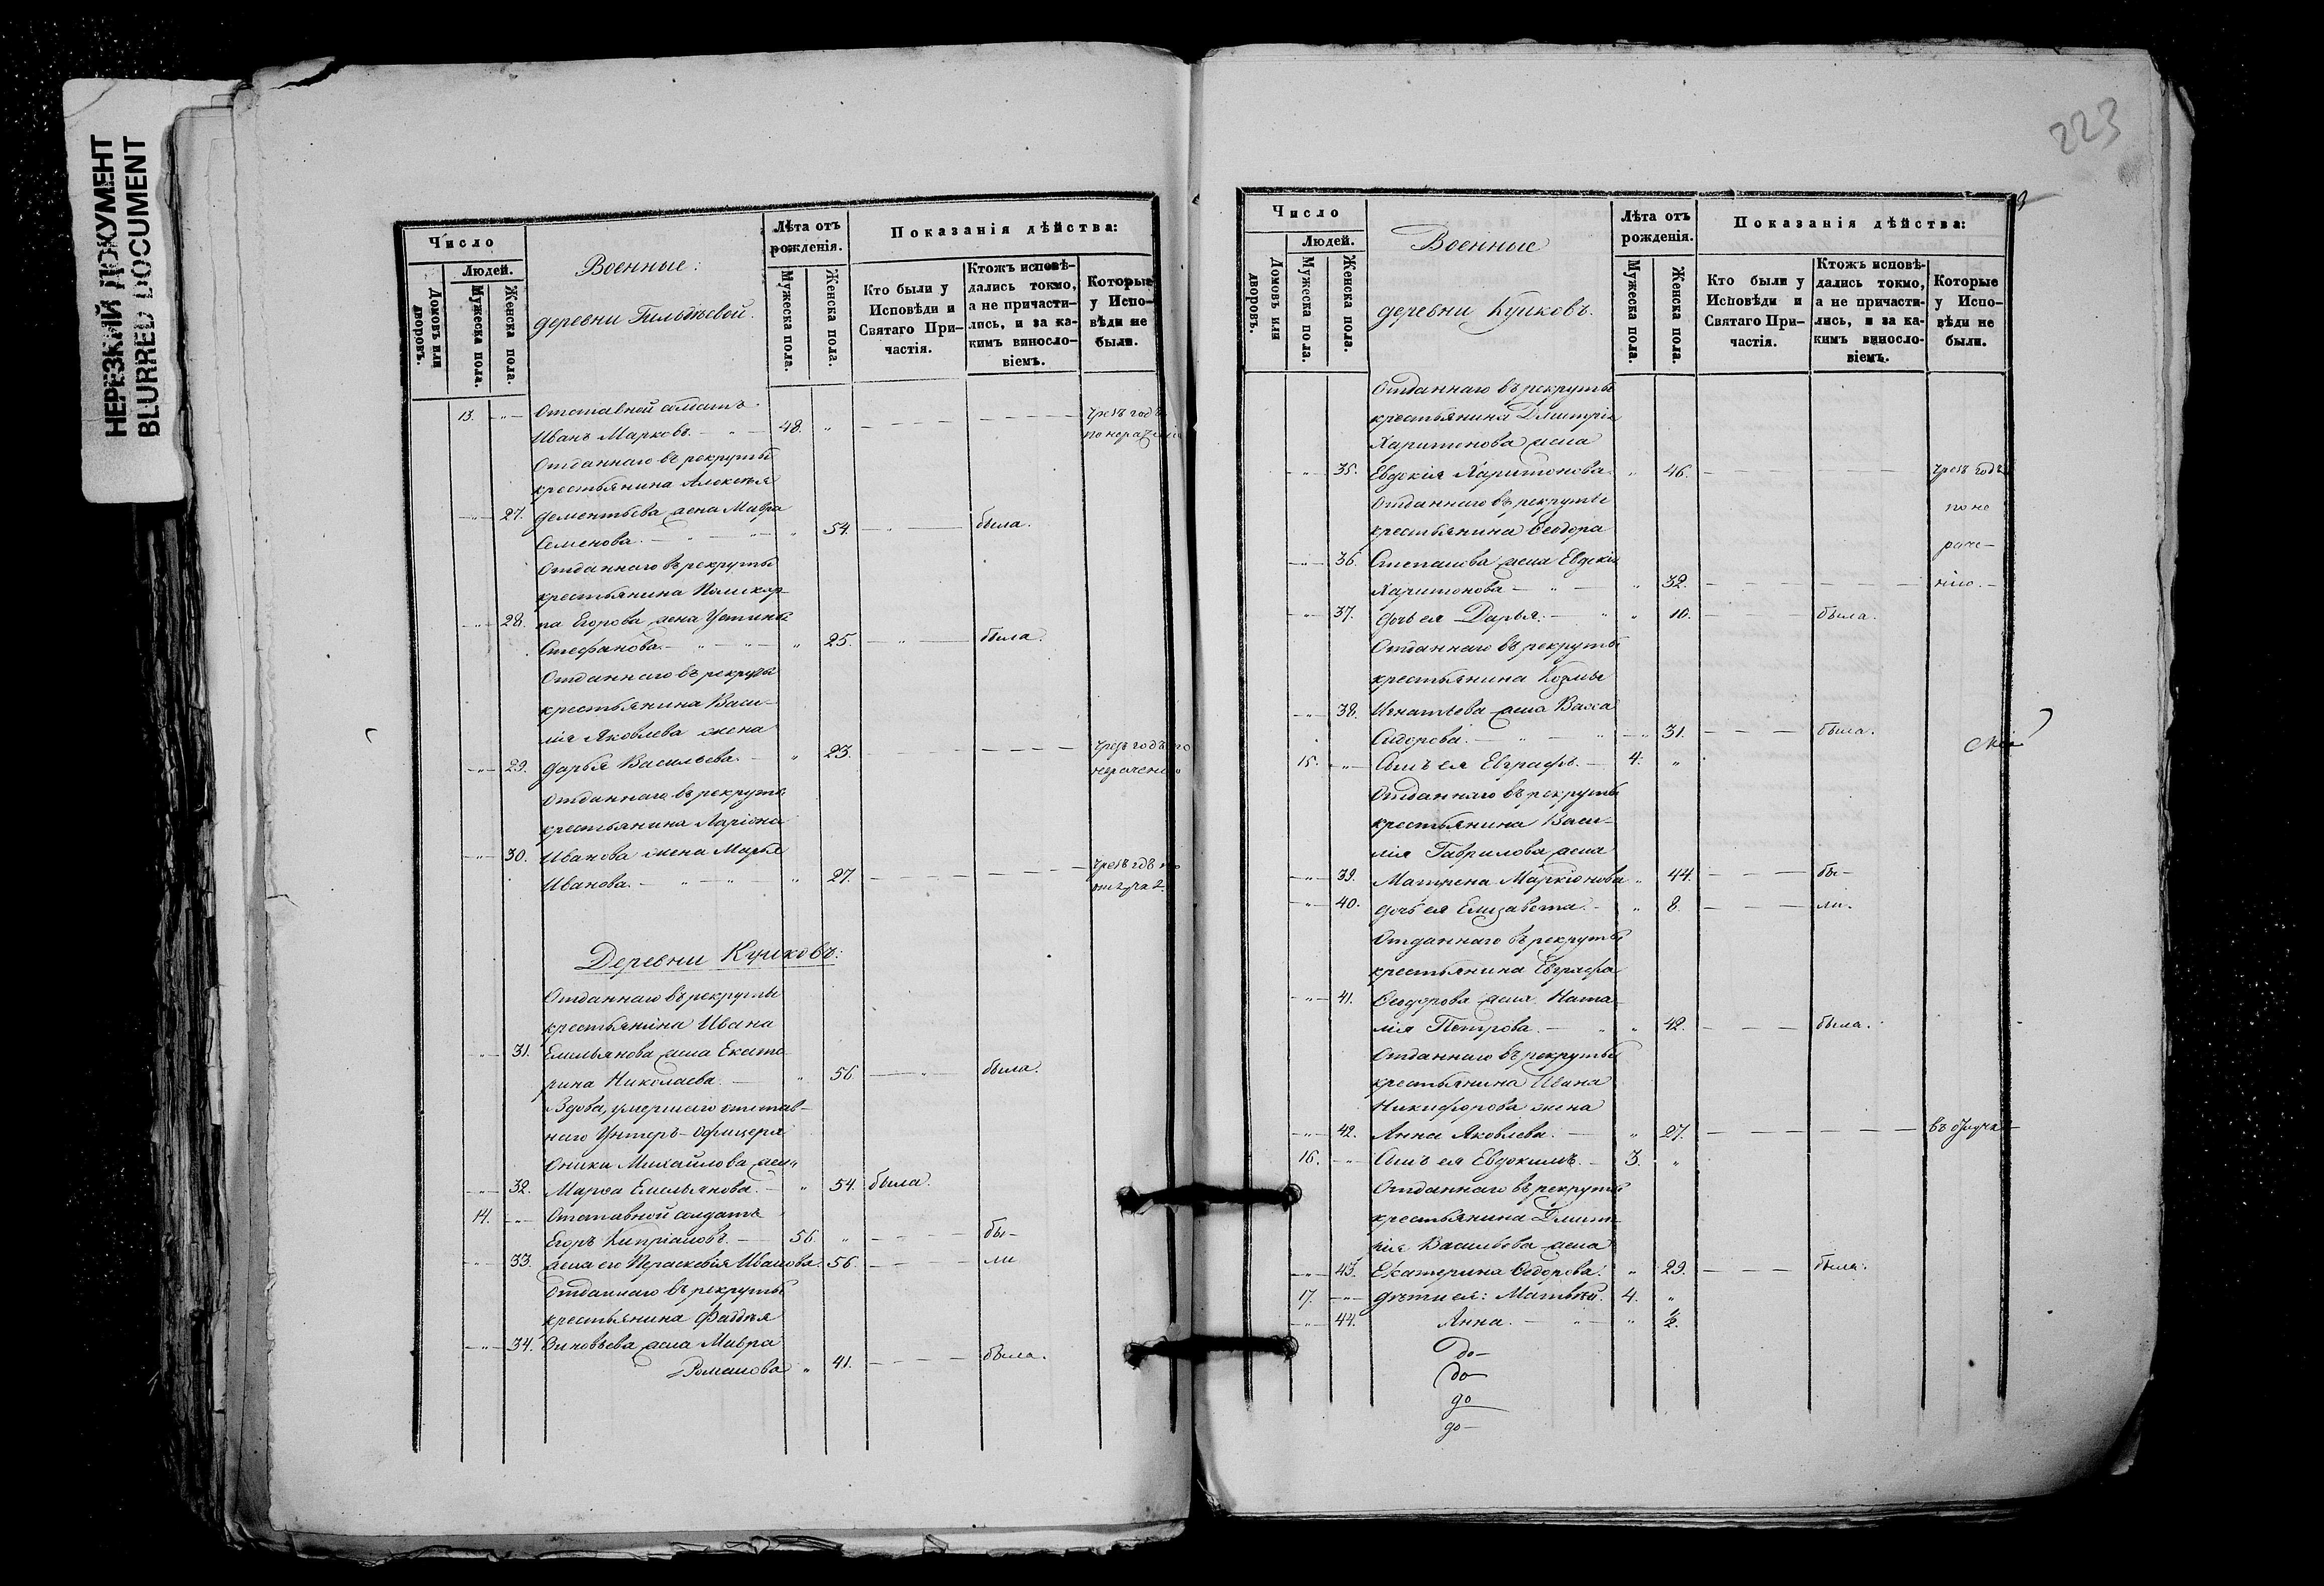 НЕРЕЗКИЙ ДОКУМЕНТ
BLURRED DOCUMENT
Число
Людей.
Домовъ или дворовъ.
Мужеска пола.
Женска пола.
Военные:
деревни
Лѣта отъ рожденія.
Мужеска пола.
Женска пола.
Показанія дѣйства:
Кто были у Исповѣди и Святаго При-частія.
Ктожъ исповѣ-дались токмо, а не причасти-лись, и за ка-кимъ винсло-віемъ.
Которые у Испо-вѣди не были.
13. Отставной солдатъ
Иванъ Марковъ. 48. чрезъ годъ
Отданнаго въ рекруты
крестьянина Алексѣя
27. Дементьева жена Мавра
Семенова. 54. была.
Отданнаго въ рекруты
крестьянина Поликар-
28. па Егорова жена Устинья
Стефанова. 25. была.
Отданнаго въ рекруты
крестьянина Васи-
лія Яковлева жена
29. Дарья Васильева. 23. чрезъ годъ по
нерачению
Отданнаго въ рекруты
крестьянина Ларіона
30. Иванова жена Марья
Иванова. 27. чрезъ годъ по
Деревни Кушковъ:
Отданнаго въ рекруты
крестьянина Ивана
31. Емельянова жена Екате-
рина Николаева. 56. была.
Вдова, умершаго отстав-
наго Унтеръ-Офицера
Оники Михайлова жена
32. Марѳа Емельянова. 54. была.
14. Отставной солдатъ
Егоръ Кипріановъ. 56. бы-
33. жена его Параскевія Иванова. 56. ли
Отданнаго въ рекруты
крестьянина Фаддѣя
34. Зиновьева жена Мавра
Романова 41. была.
223
Число
Людей.
Домовъ или дворовъ.
Мужеска пола.
Женска пола.
Военные
деревни Кушковъ.
Лѣта отъ рожденія.
Мужеска пола.
Женска пола.
Показанія дѣйства:
Кто были у Исповѣди и Святаго При-частія.
Ктожъ исповѣ-дались токмо, а не причасти-лись, и за ка-кимъ винсло-віемъ.
Которые у Испо-вѣди не были.
Отданнаго въ рекруты
крестьянина Дмитрія
Харитонова жена
35. Евдокія Харитонова. 46. чрезъ годъ
Отданнаго въ рекруты по не
крестьянина Ѳеодора раче-
36. Степанова жена Евдокія
Харитонова 32. нію.
37. дочь ея Дарья. 10. была.
Отданнаго въ рекруты
крестьянина Козмы
38. Игнатьева жена Васса
Сидорова. 31. была.
15. Сынъ ея Евграфъ. 4.
Отданнаго въ рекруты
крестьянина Васи-
лія Гаврилова жена
39. Матрена Маркіонова 44. бы-
40. дочь ея Елизавета. 8. ли.
Отданнаго въ рекруты
крестьянина Евграфа
41. Ѳеодорова жена Ната-
лія Петрова. 42. была.
Отданнаго въ рекруты
крестьянина Ивана
Никифорова жена
42. Анна Яковлева. 27. въ отлучкѣ
16. Сынъ ея Евдокимъ. 3.
Отданнаго въ рекруты
крестьянина Дмит-
рія Васильева жена
43. Екатерина Ѳедорова. 29. была.
17. дѣти ея: Матвѣй. 4.
44. Анна.
до
до
до
до